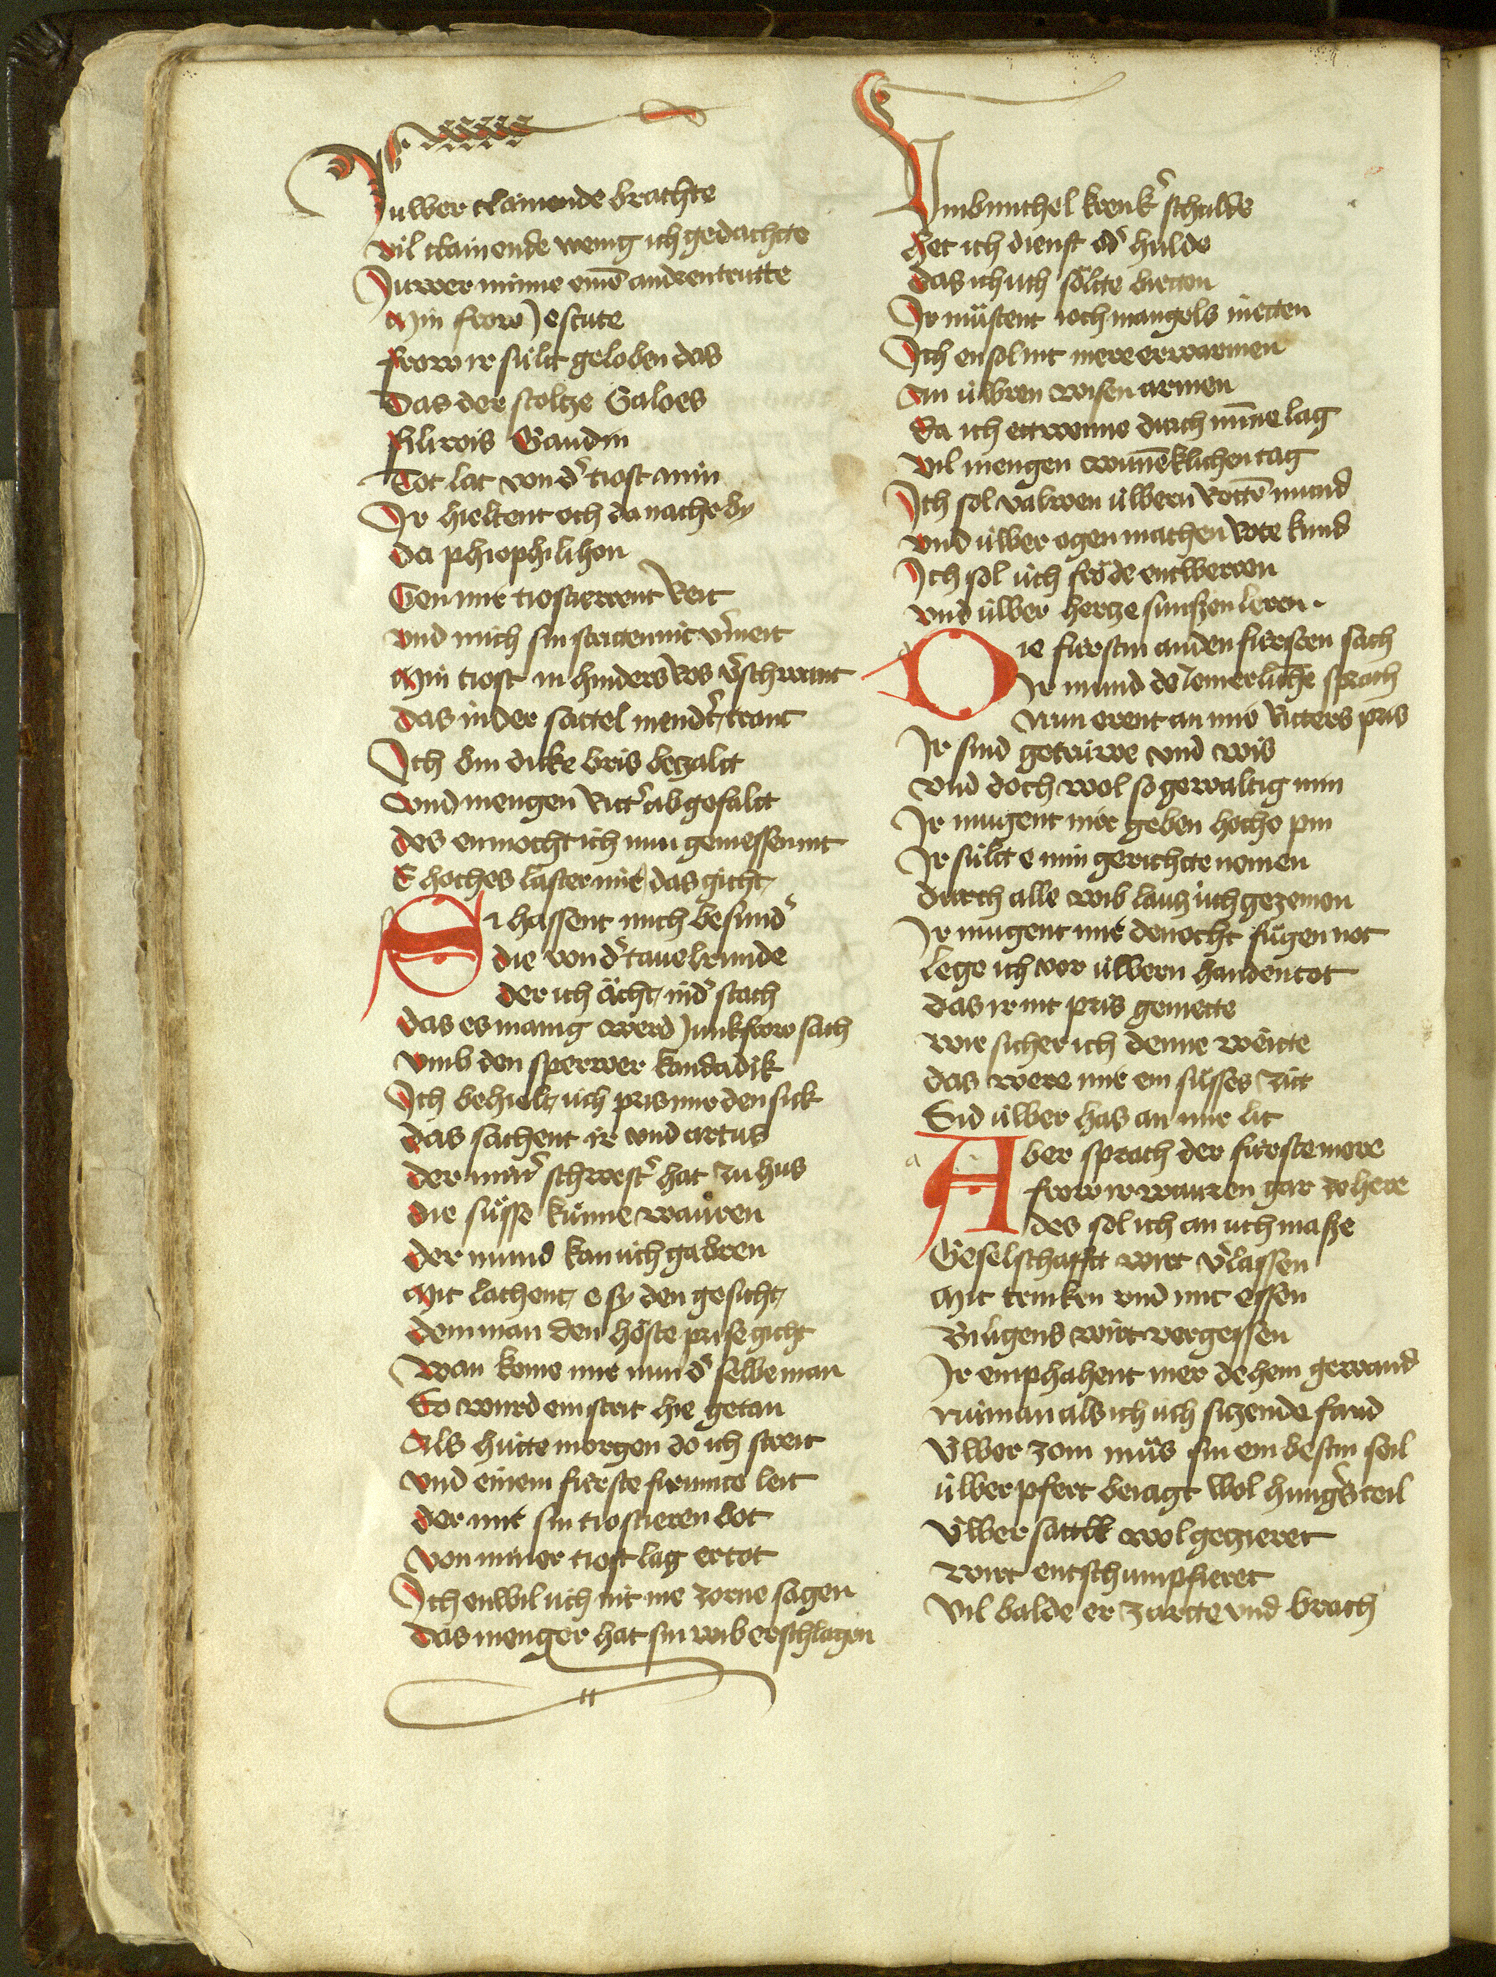 Juwer clainende brachte
vil clainende wenig ich gedachte
Juwer minne eine͂ andren trutte
Min frow Jescute
frow ir su̍lt geloben das
Das der stolze Galoes
filirois Gandin
Tot lat von d' tiost min
Ir hieltent och da nache by
da phiophilihon
Gen mir tiostierent reit
vnd mich sin striten nit v'meit
Min tiost in hinders ros v'schwant
das in der sattel niendert rant
Ich bin dicke bris bezalt
vnd mengen ritt' ab gefalt
des enmocht ich nun geniessen nit
E hoches laster mir das gicht
Si hassent mich besund'
die von d' tauelrunde
der ich ächt nid' stach
das es manig werd Junkfrow sach
vmb den sperwer kandadik
Ich behielt u̍ch pris mir den sick
das sachent ir vnd artus
der min' schwest' hat zu hus
die su̍sse kunne waren
der mund kan u̍ch gabren
Mit lachent e sy den gesicht
dem man den höste prise gicht
wan kome mir nun d' selbe man
So wurd ein strit hie getan
Als hu̍tte morgen do ich streit
vnd einem fu̍rste frumte leit
der mir sin tiostieren bot
von miner tiost lag er tot
Ich enwil u̍ch nit me zorne sagen
das menger hat sin wib erschlagen
Vmb michel krenk' schulde
Het ich dienst od' hulde
das ich u̍ch sölte bietten
Ir mu̍stent u̍ch mangels nietten
Ich ensol nit mere erwarmen
An u̍wren wisen armen
da ich ettwenne durch min͂e lag
vil mengen wun͂eklichen tag
Ich sol valwen u̍wern rotte͂ mund
vnd u̍wer ogen machen röte kund
Ich sol u̍ch frö̍de entweren
vnd u̍wer hertze su̍nfzen leren
Die fu̍rstin an den fu̍rsten sach
Ir mund do Jemerliche sprach
Nun erent an mir ritters pris
Ir sind getru̍we vnd wis
vnd doch wol so gewaltig min
Ir mugent mir geben hoche pin
Ir su̍lt e min gerichte nemen
durch alle wib lauz u̍ch gezemen
Ir mugent mir denocht fu̍gen not
lege ich vor u̍wern handen tot
das ir nit pris geniette
wie sicher ich denne wêitte
das were mir ein su̍sses zit
Sid u̍wer has an mir lit
Aber sprach der fu̍rste mere
frow ir wurren gar ze here
des sol ich an uch masze
Geselschafft wirt v'lassen
Mit trinken vnd mit essen
Biligens wirt vergessen
Ir emphahent mer dehein gewand
niman als ich u̍ch sitzende fand
U̍wer zom mu̍s sin ein bestin seil
u̍wer pfert beiagt wol hung's teil
U̍wer sattel wol gezieret
wirt entschumpfieret
Vil balde er zartte vnd brach